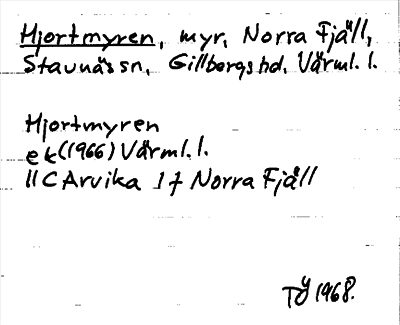 Hjortmyren, myr, Norra Fjäll,
Stavnäs sn, Gillbergs hd, Värml. l.
Hjortmyren
ek (1966) Värml. l.
11 C Arvika 1 f Norra Fjäll
TÝ 1968.